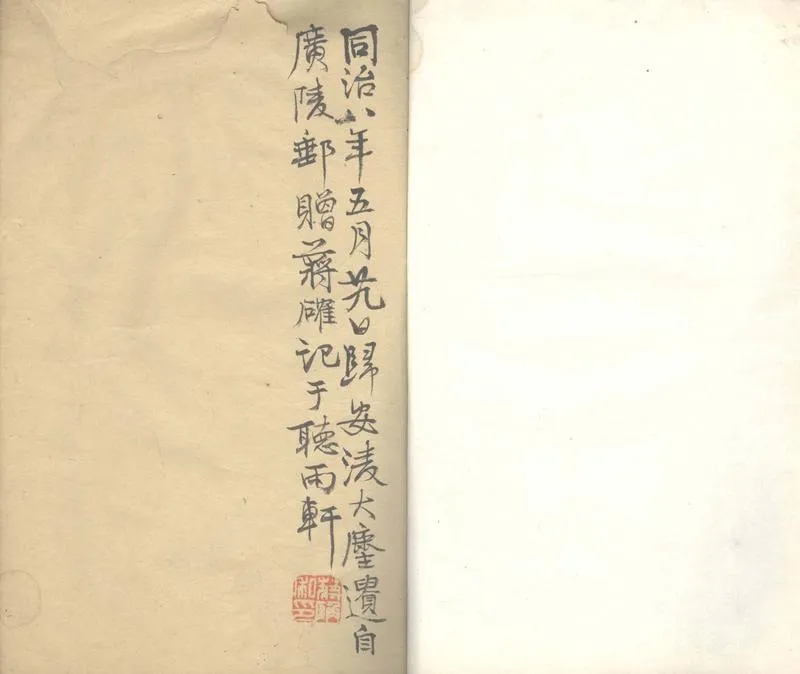 同治八年五月廿九日歸安淩大麈遺自
廣陵郵贈蔣確記于聽雨軒